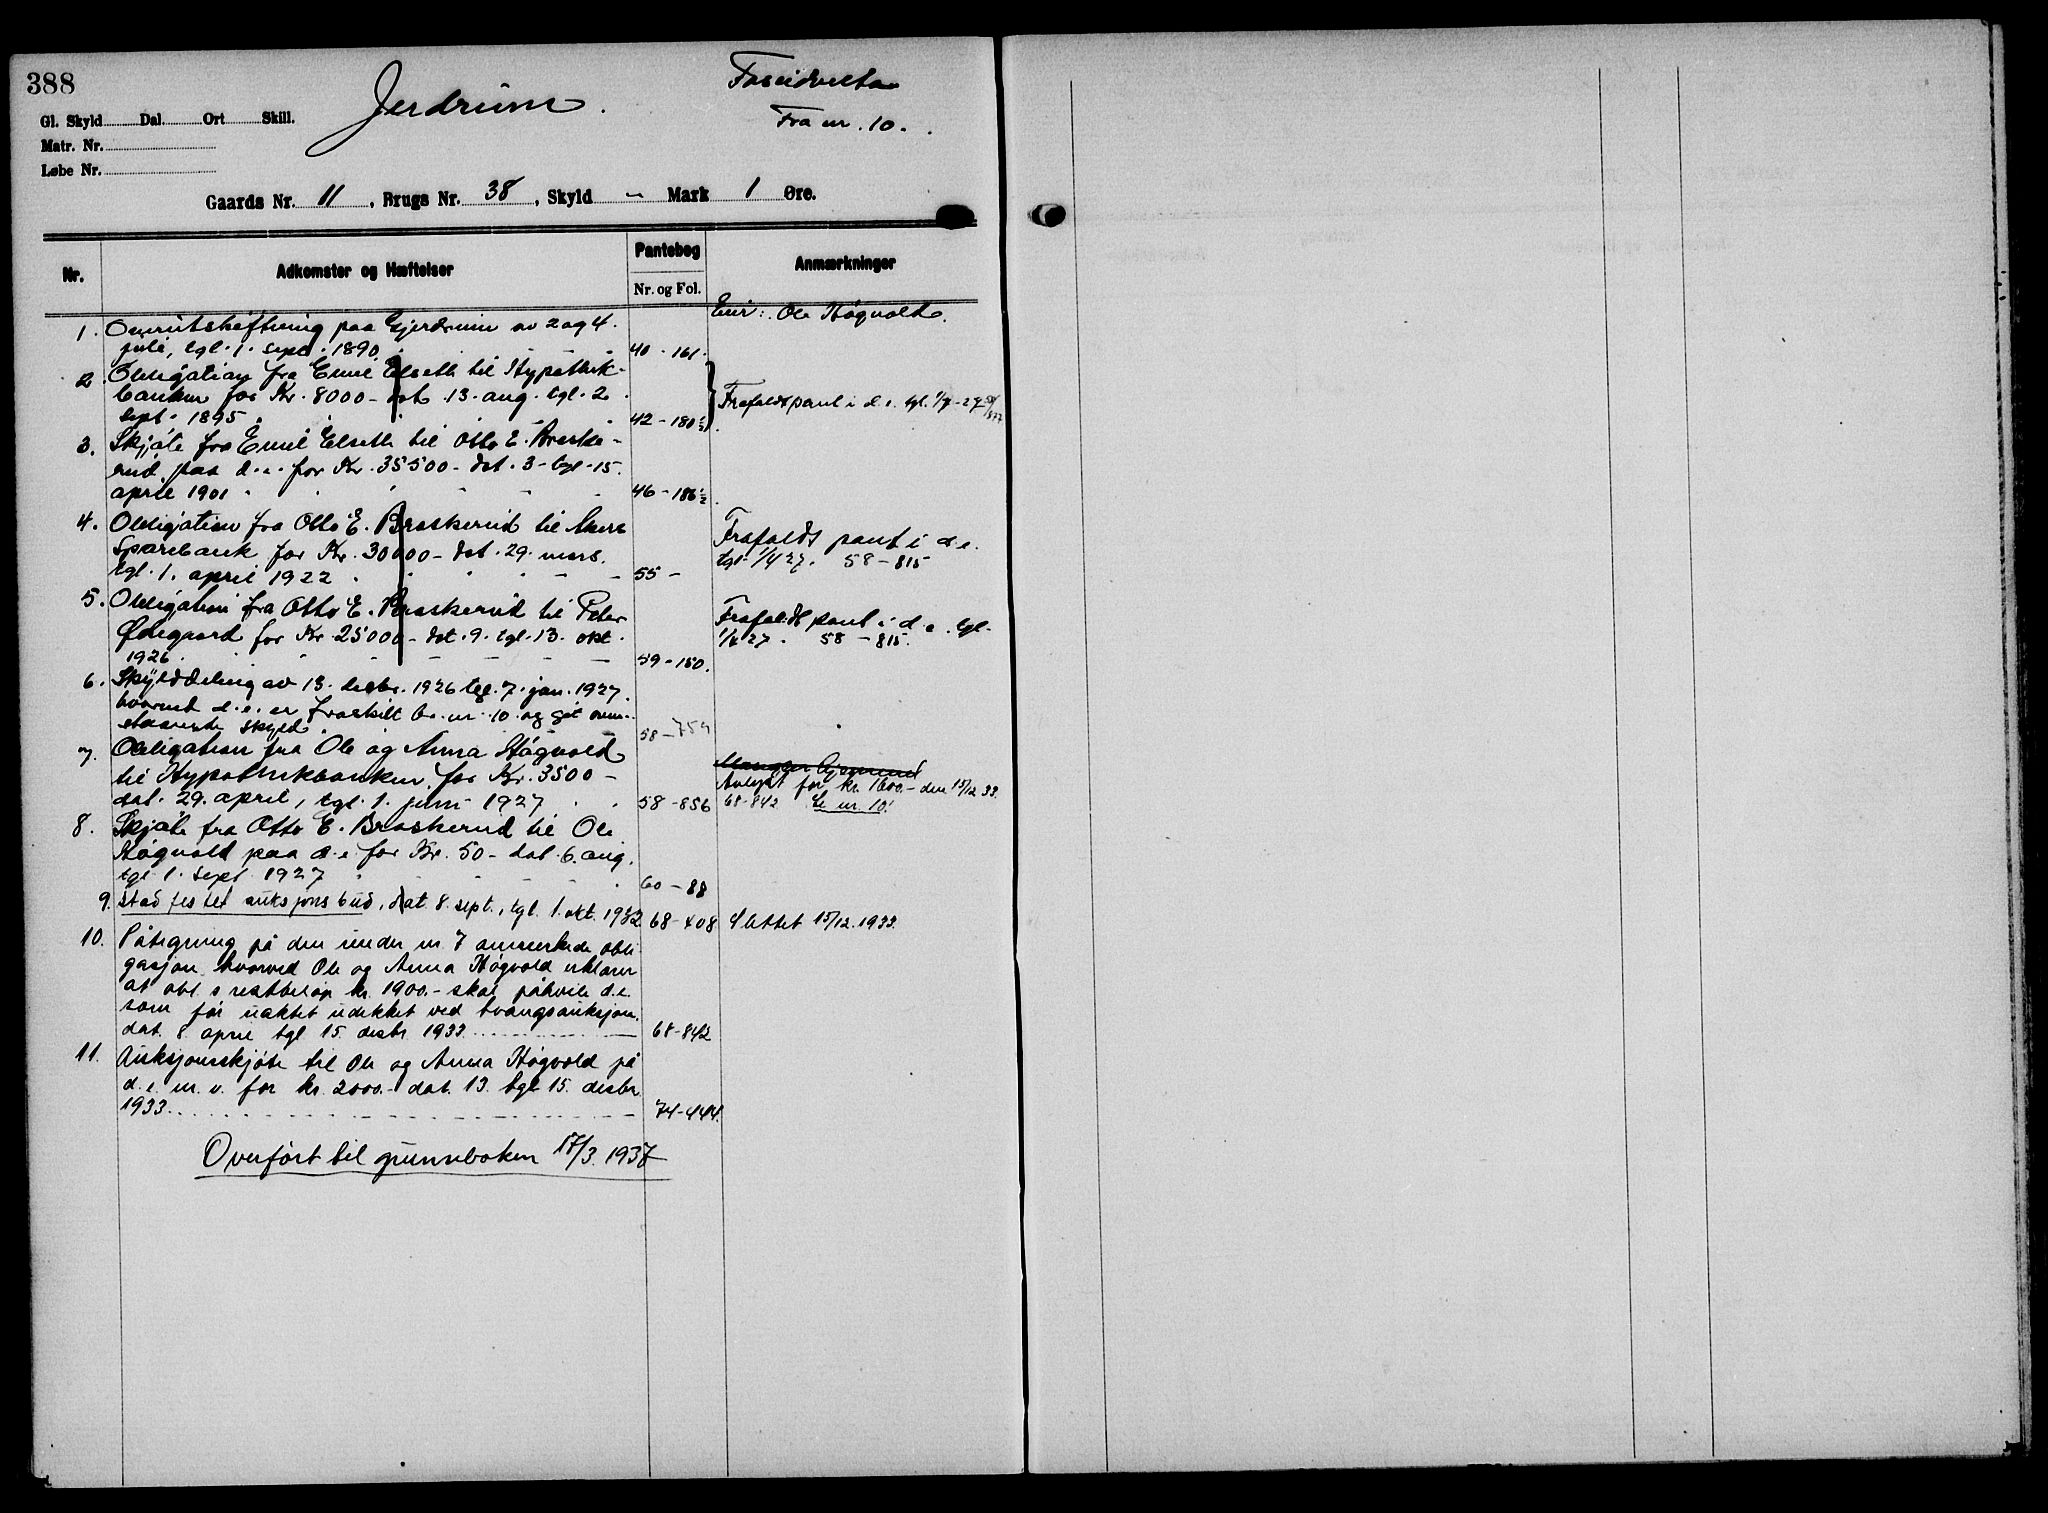 388
Jerdrum.
Fra nr. 10.
Gl. Skyld Dal. Ort Skill.
Matr. Nr.
Løbe Nr.
Gaards Nr. 11, Brugs Nr. 38, Skyld - Mark 1 Øre.
Nr. Adkomster og Hæftelser Pantebog Nr. og Fol. Anmærkninger
Eier: Ole Høgvold.
1. Omutskiftning paa Gjerdrum av 2 og 4.
juli, tgl. 1. sept. 1890. 40 - 161.
2. Obligation fra Emil Elseth til Hypothek-
banken for Kr. 8000 - dat. 13. aug. tgl. 2.
sept. 1895. 42 - 180½. Frafaldt pant i d.e. tgl.
3. Skjøte fra Emil Elseth til Otto E. Braske-
rud paa d.e. for Kr. 35500 - dat. 3 - tgl. 15.
april 1901 46 - 186½.
4. Obligation fra Otto E. Braskerud til Akers
Sparebank for Kr. 30000 - dat. 29. mars.
tgl. 1. april 1922. 55 -
Frafaldt pant i d.e.
tgl. 1/4 27. 58 - 815
5. Obligation fra Otto E. Braskerud til Peter
Ødegaard for Kr. 25000 - dat. 9. tgl. 13. okt.
1926. 59 - 150.
Frafaldt pant i d.e. tgl.
1/4 27. 58 - 815.
6. Skylddeling av 13. desbr. 1926 tgl. 7. jan. 1927.
hvorved d.e. er fraskilt br. nr. 10 og git oven-
staaende skyld. 58 - 759
7. Obligation fra Ole og Anna Høgvold
til Hypothekbanken for Kr. 3500 -
dat. 29. april, tgl. 1. juni 1927 58 - 856
Avlyst for kr. 1600.- den 15/12 33.
68-842 Se nr. 10!
8. Skjøte fra Otto E. Braskerud til Ole
Høgvold paa d.e. for Kr. 50 - dat. 6. aug.
tgl. 1. sept. 1927 60 - 88
9. Stadfestet auksjonsbud, dat. 8. sept., tgl. 1. okt. 1932 68-408 Slettet 15/12.1933.
10. Påtegning på den under nr. 7 anmerkede obli-
gasjon hvorved Ole og Anna Høgvold erklærer
at obl.s restbeløp kr. 1900.- skal påhvile d.e.
som før uaktet udekket ved tvangsauksjon.
dat. 8. april tgl. 15. desbr. 1933 68-842
11. Auksjonsskjøte til Ole og Anna Høgvold på
d.e. m.v. for kr. 2000.- dat. 13. tgl. 15. desbr.
1933. 74-444.
Overført til grunnboken 17/3. 1937